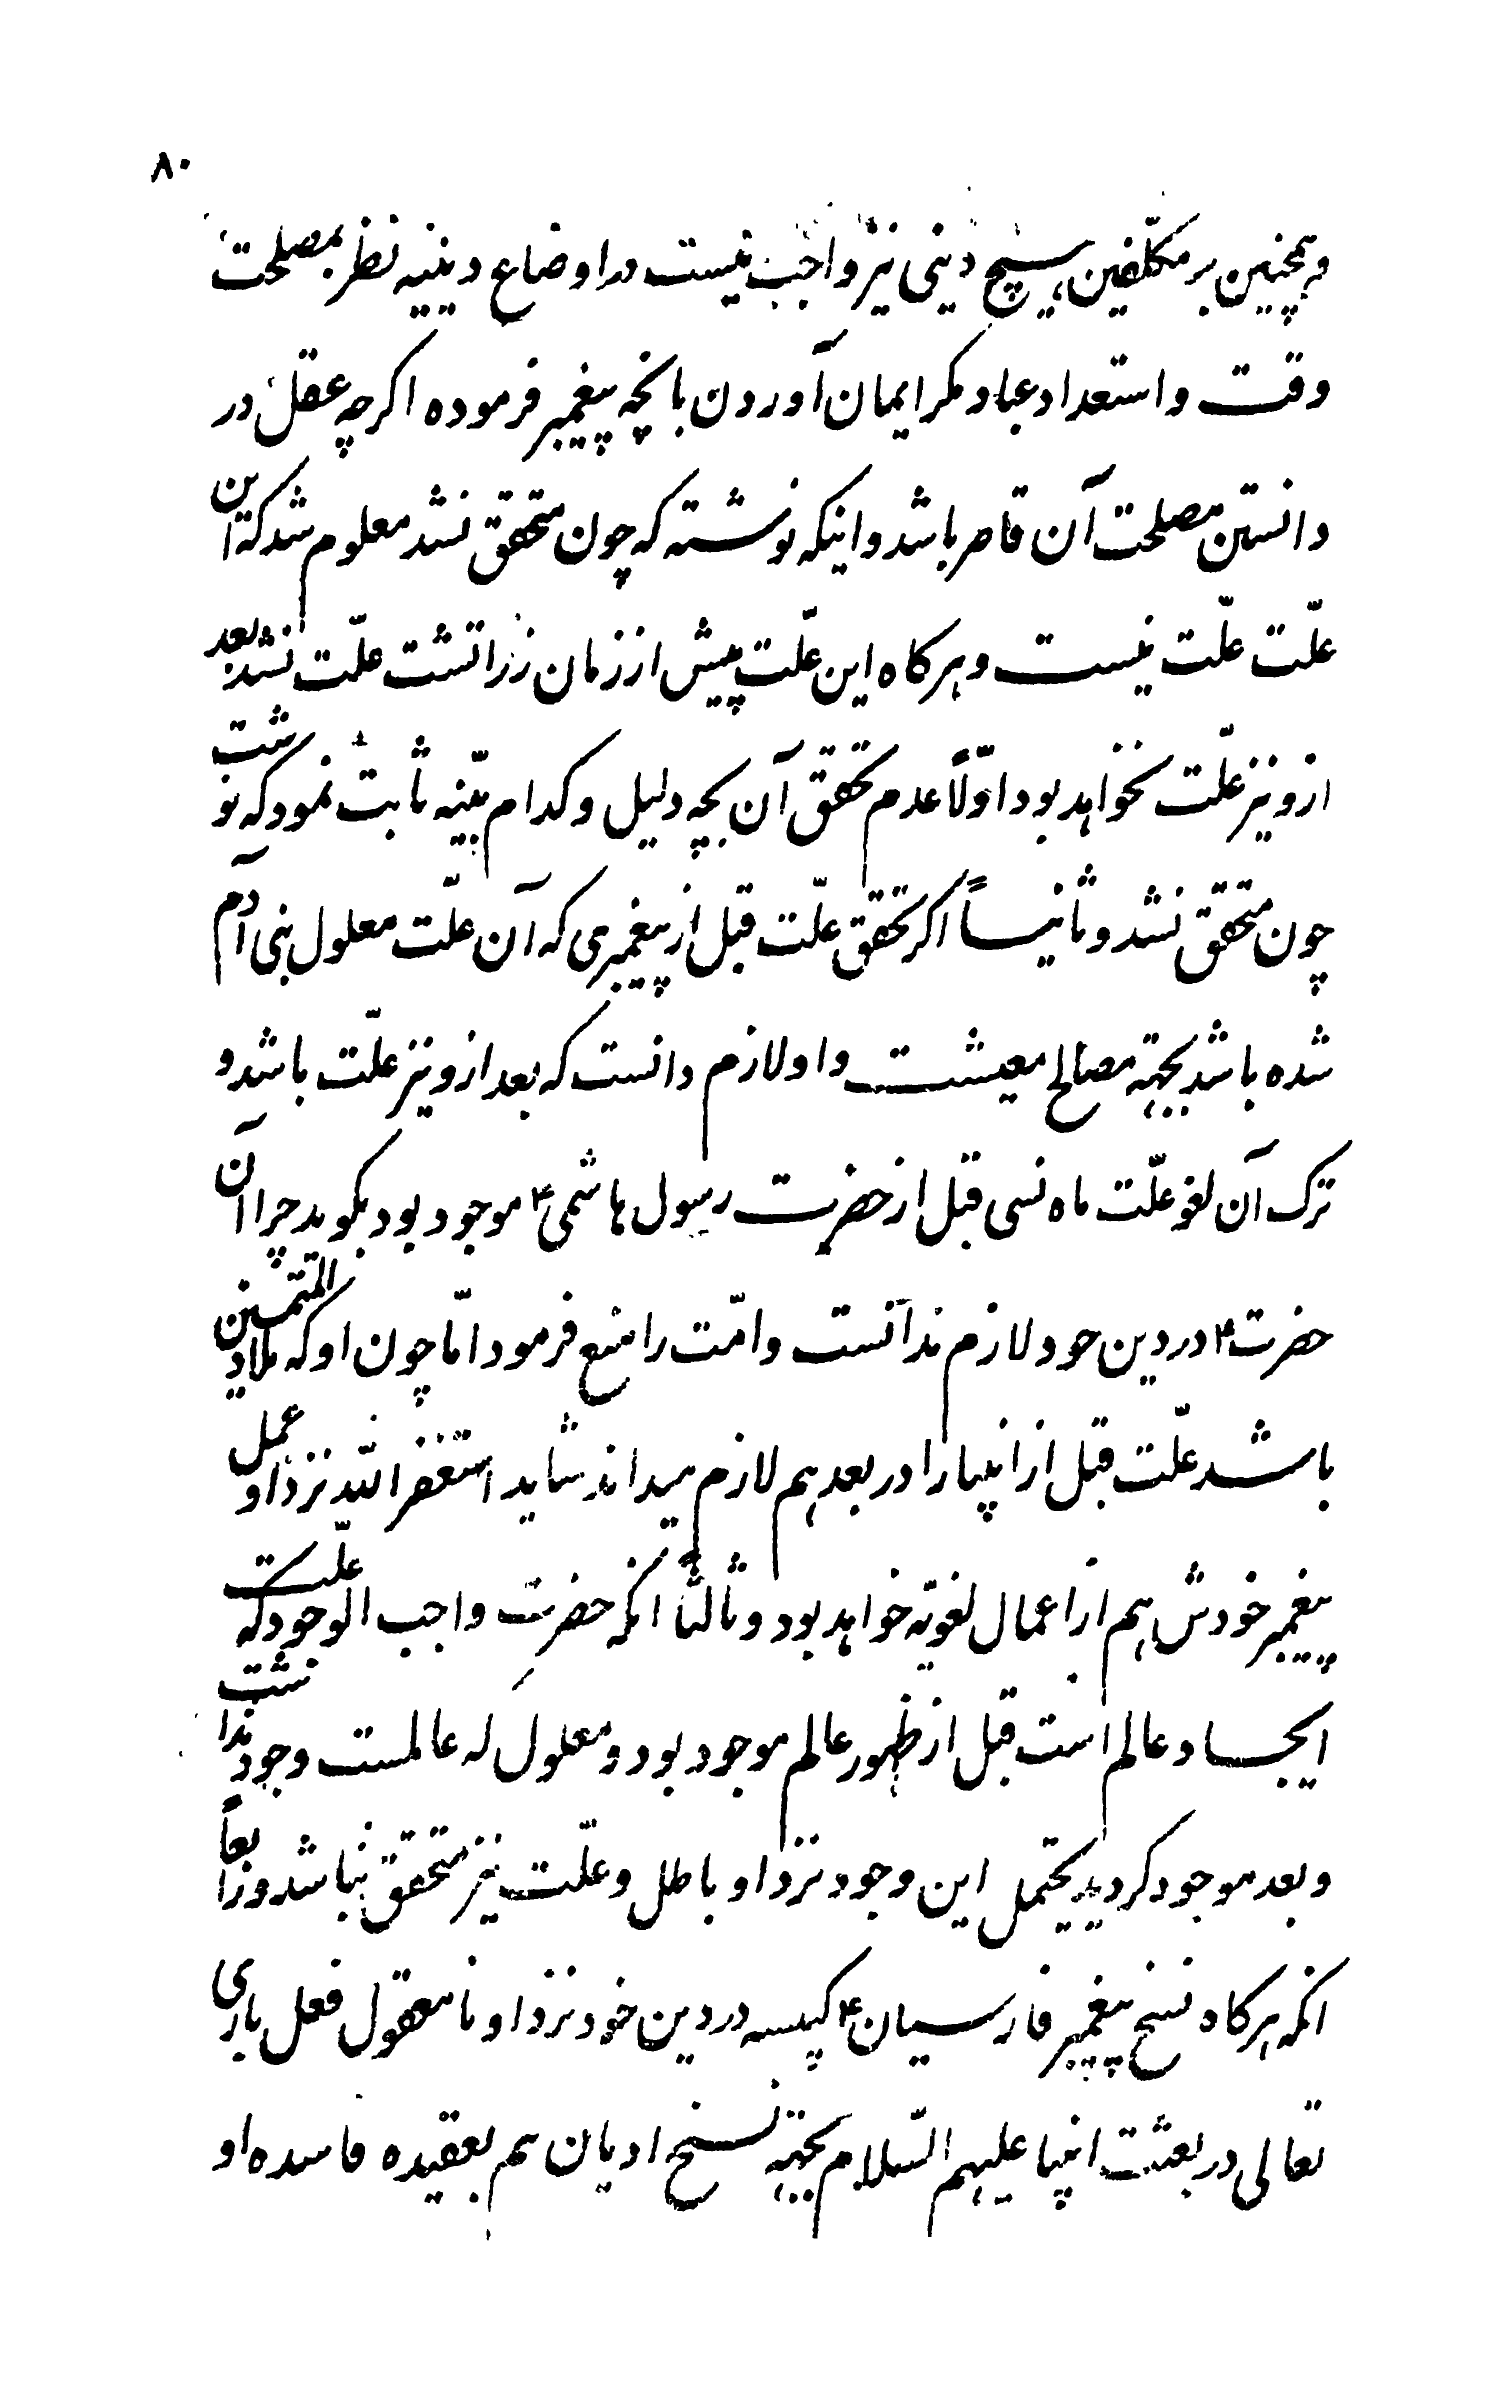 ۸۰
و همچنین بر مکلّفین هیچ دینی نیز واجب نیست در اوضاع دینیه نظر بمصلحت
وقت و استعداد عباد مکر ایمان آوردن بانچه پیغمبر فرموده اکرچه عقل در
دانستن مصلحت آن قاصر باشد و اینکه نوشته که چون متحقق نشد معلوم شد که این
علّت علّت نیست و هرکاه این علّت پیش از زمان زراتشت علّت نشد بعد
ازو نیز علّت نخواهد بود اوّلاً عدم تحقق آن بچه دلیل و کدام بیّنه ثابت نمود که نوشت
چون متحقق نشد و ثانیاً اکر تحقق علّت قبل از پیغمبری که آن علّت معلول بنی آدم
شده باشد بجهته مصالح معیشت و او لازم دانست که بعد ازو نیز علّت باشد و
ترک آن لغو علّت ماه نسی قبل از حضرت رسول هاشمی ۴ موجود بود بکوید چرا آن
حضرت ۴ در دین خود لازم ندانست و امّت را منع فرمود امّا چون او که ملاد المتحسنین
باشد علّت قبل از انبیا را در بعد هم لازم میداند شاید استغفر اللّه نزد او عمل
پیغمبر خودش هم از اعمال لغویّه خواهد بود و ثالثاً انکه حضرت واجب الوجود که علّت
ایجاد عالم است قبل از ظهور عالم موجود بود و معلول له عالمست وجود نداشت
و بعد موجود کردید یحتمل این وجود نزد او باطل و علّت نیز متحقق نباشد و رابعاً
انکه هرکاه نسخ پیغمبر فارسیان ۴ کبیسه در دین خود نزد او نامعقول فعل باری
تعالی در بعثت انبیا علیهم السّلام بجهته نسخ ادیان هم بعقیده فاسده او